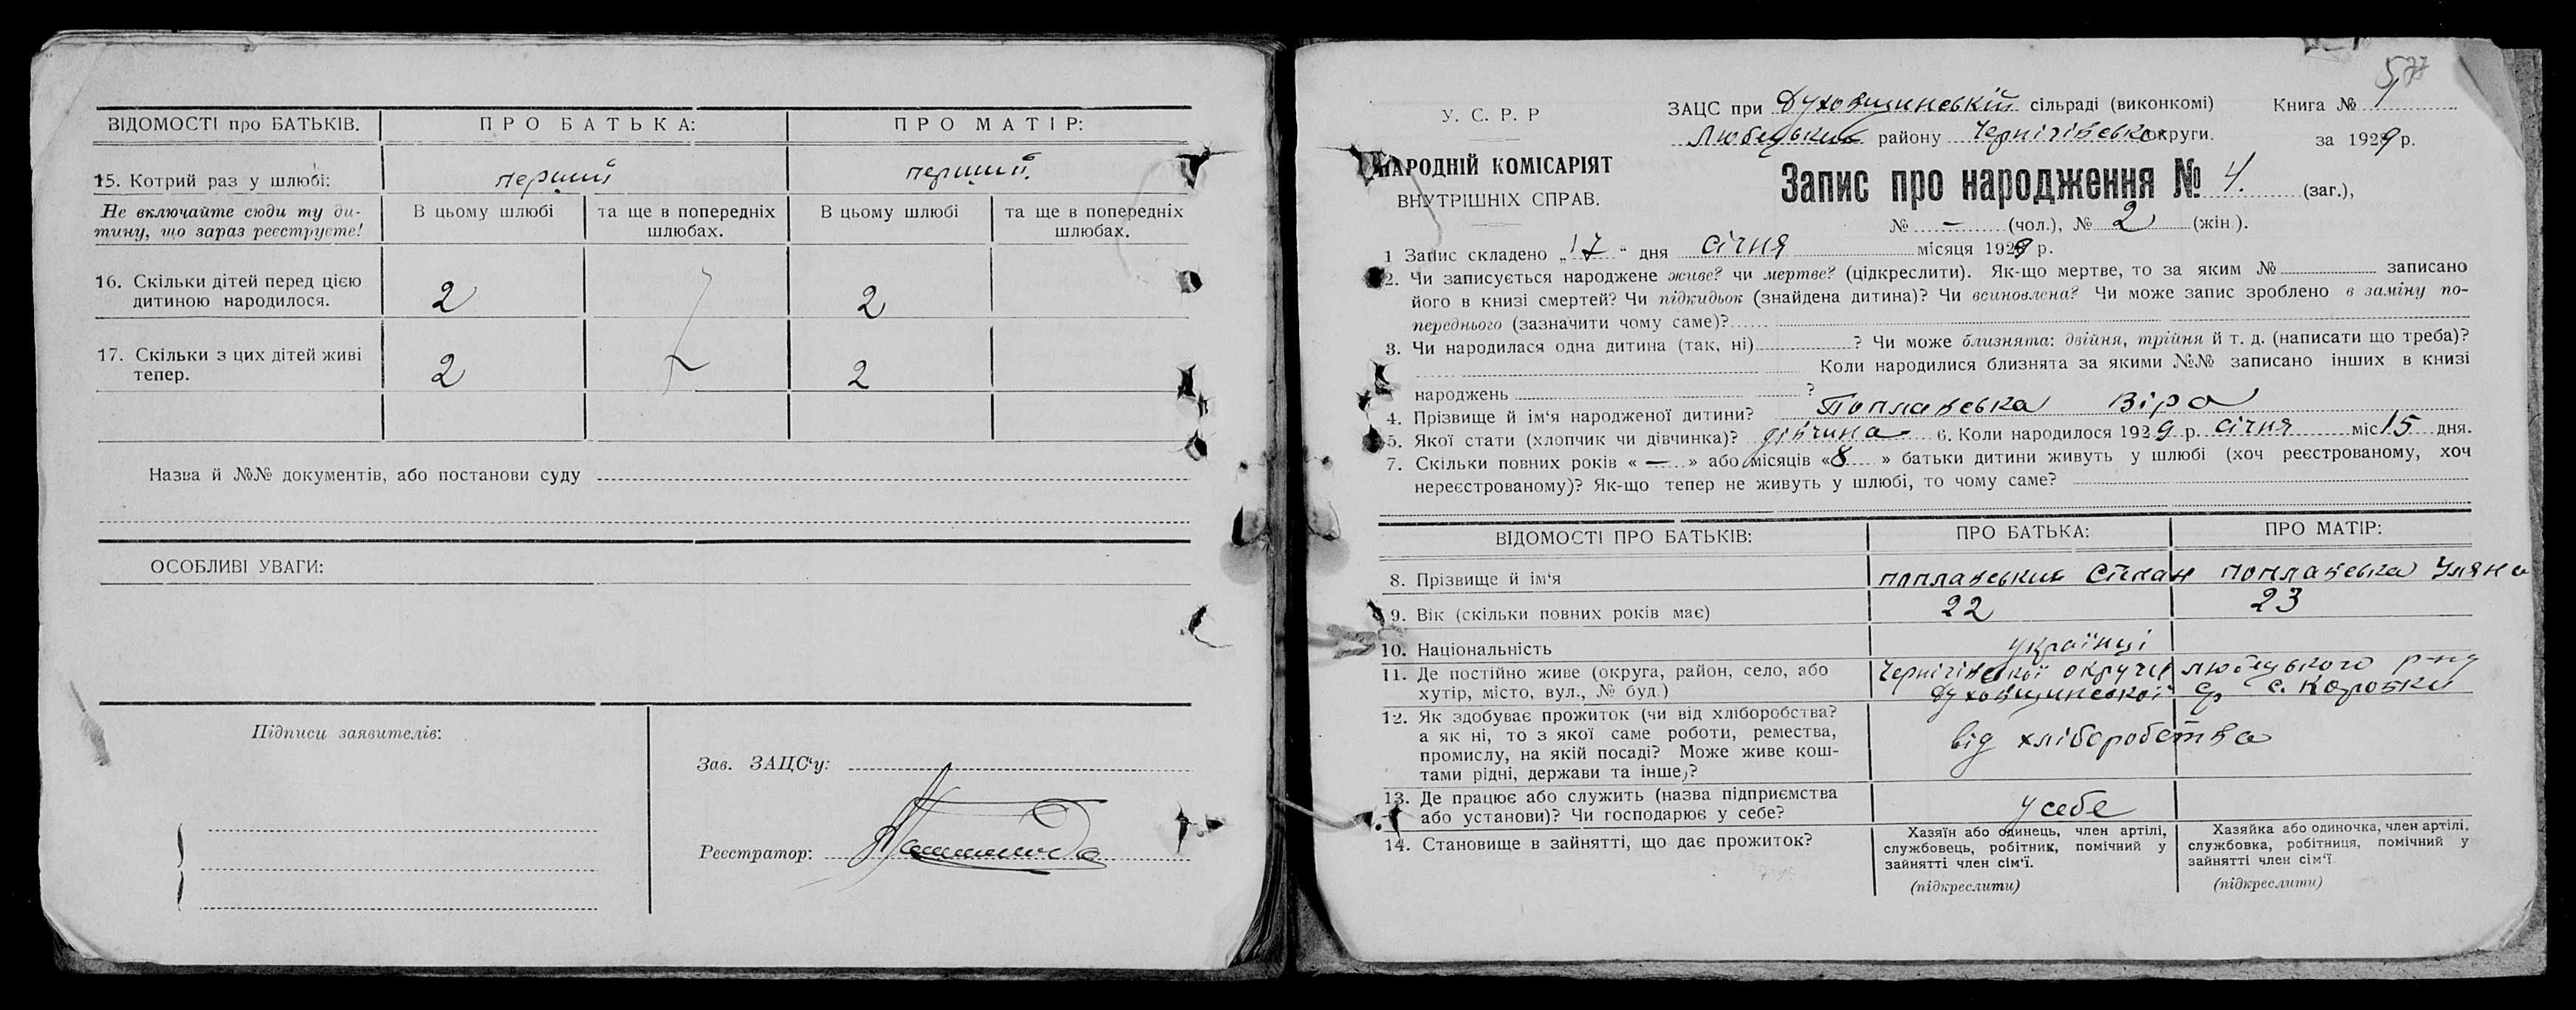 ВІДОМОСТІ про БАТЬКІВ. ПРО БАТЬКА: ПРО МАТІР:
15. Котрий раз у шлюбі: перший перший.
Не включайте сюди ту ди- В цьому шлюбі та ще в попередніх В цьому шлюбі та ще в попередніх
тину, що зараз реєструєте! шлюбах. шлюбах.
16. Скільки дітей перед цією
дитиною народилося. 2 2
17. Скільки з цих дітей живі
тепер. 2 2
Назва й №№ документів, або постанови суду
ОСОБЛИВІ УВАГИ:
Підписи заявителів:
Зав. ЗАЦС‘у:
Реєстратор:
577
У. С. Р. Р
НАРОДНІЙ КОМІСАРІЯТ
ВНУТРІШНІХ СПРАВ.
ЗАЦС при Духовщинській сільраді (виконкомі) Книга № 1
Любецького району Чернігівської округи. за 1929 р.
Запис про народження № 4. (заг.),
№ – (чол.), № 2 (жін.).
1 Запис складено „17“ дня січня місяця 1929 р.
2. Чи записується народжене живе? чи мертве? (цідкреслити). Як-що мертве, то за яким № записано
його в книзі смертей? Чи підкидьок (знайдена дитина)? Чи всиновлена? Чи може запис зроблено в заміну по-
переднього (зазначити чому саме)?
3. Чи народилася одна дитина (так, ні) ? Чи може близнята: двійня, трійня й т. д. (написати що треба)?
Коли народилися близнята за якими №№ записано інших в книзі
народжень ?
4. Прізвище й ім‘я народженої дитини? Поплавська Віра
5. Якої стати (хлопчик чи дівчинка)? дівчина 6. Коли народилося 1929 р. січня міс 15 дня.
7. Скільки повних років « — » або місяців «8» батьки дитини живуть у шлюбі (хоч реєстрованому, хоч
нереєстрованому)? Як-що тепер не живуть у шлюбі, то чому саме?
ВІДОМОСТІ ПРО БАТЬКІВ: ПРО БАТЬКА: ПРО МАТІР:
8. Прізвище й ім‘я Поплавський Степан Поплавська Уляна
9. Вік (скільки повних років має) 22 23
10. Національність українці
11. Де постійно живе (округа, район, село, або Чернігівської округи Любецького р-ну
хутір, місто, вул., № буд.) Духовщинської с. Коробки
12. Як здобуває прожиток (чи від хліборобства?
а як ні, то з якої саме роботи, ремества, від хліборобства
промислу, на якій посаді? Може живе кош-
тами рідні, держави та інше)?
13. Де працює або служить (назва підприємства у себе
або установи)? Чи господарює у себе?
14. Становище в зайнятті, що дає прожиток?
Хазяїн або одинець, член артілі,
службовець, робітник, помічний у
зайнятті член сім‘ї.
(підкреслити)
Хазяйка або одиночка, член артілі,
службовка, робітниця, помічний у
зайнятті член сім‘ї
(підкреслити)